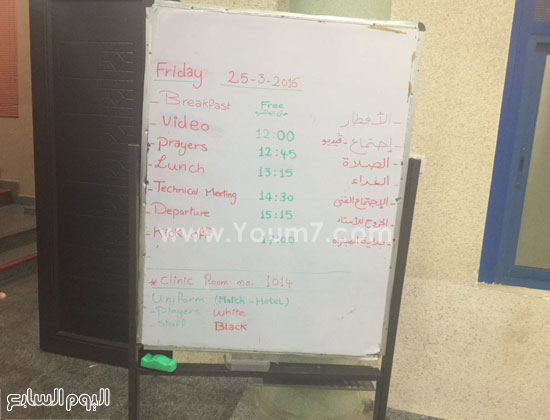 Friday 25-3-2015
- Breakfast Free - الأفطار
- Video 12:00 - إجتماع - ڤيديو
- Prayers 12:45 - الصلاة
- Lunch 13:15 - الغداء
- Technical Meeting 14:30 - الإجتماع الفنى
- Departure 15:15 - الخروج للأستاد
- Kick off 17:00 بداية المباراة
www.Youm7.com
* Clinic Room no. 1014
Uniform (Match - Hotel)
- Players White
- Staff Black
اليوم السابع